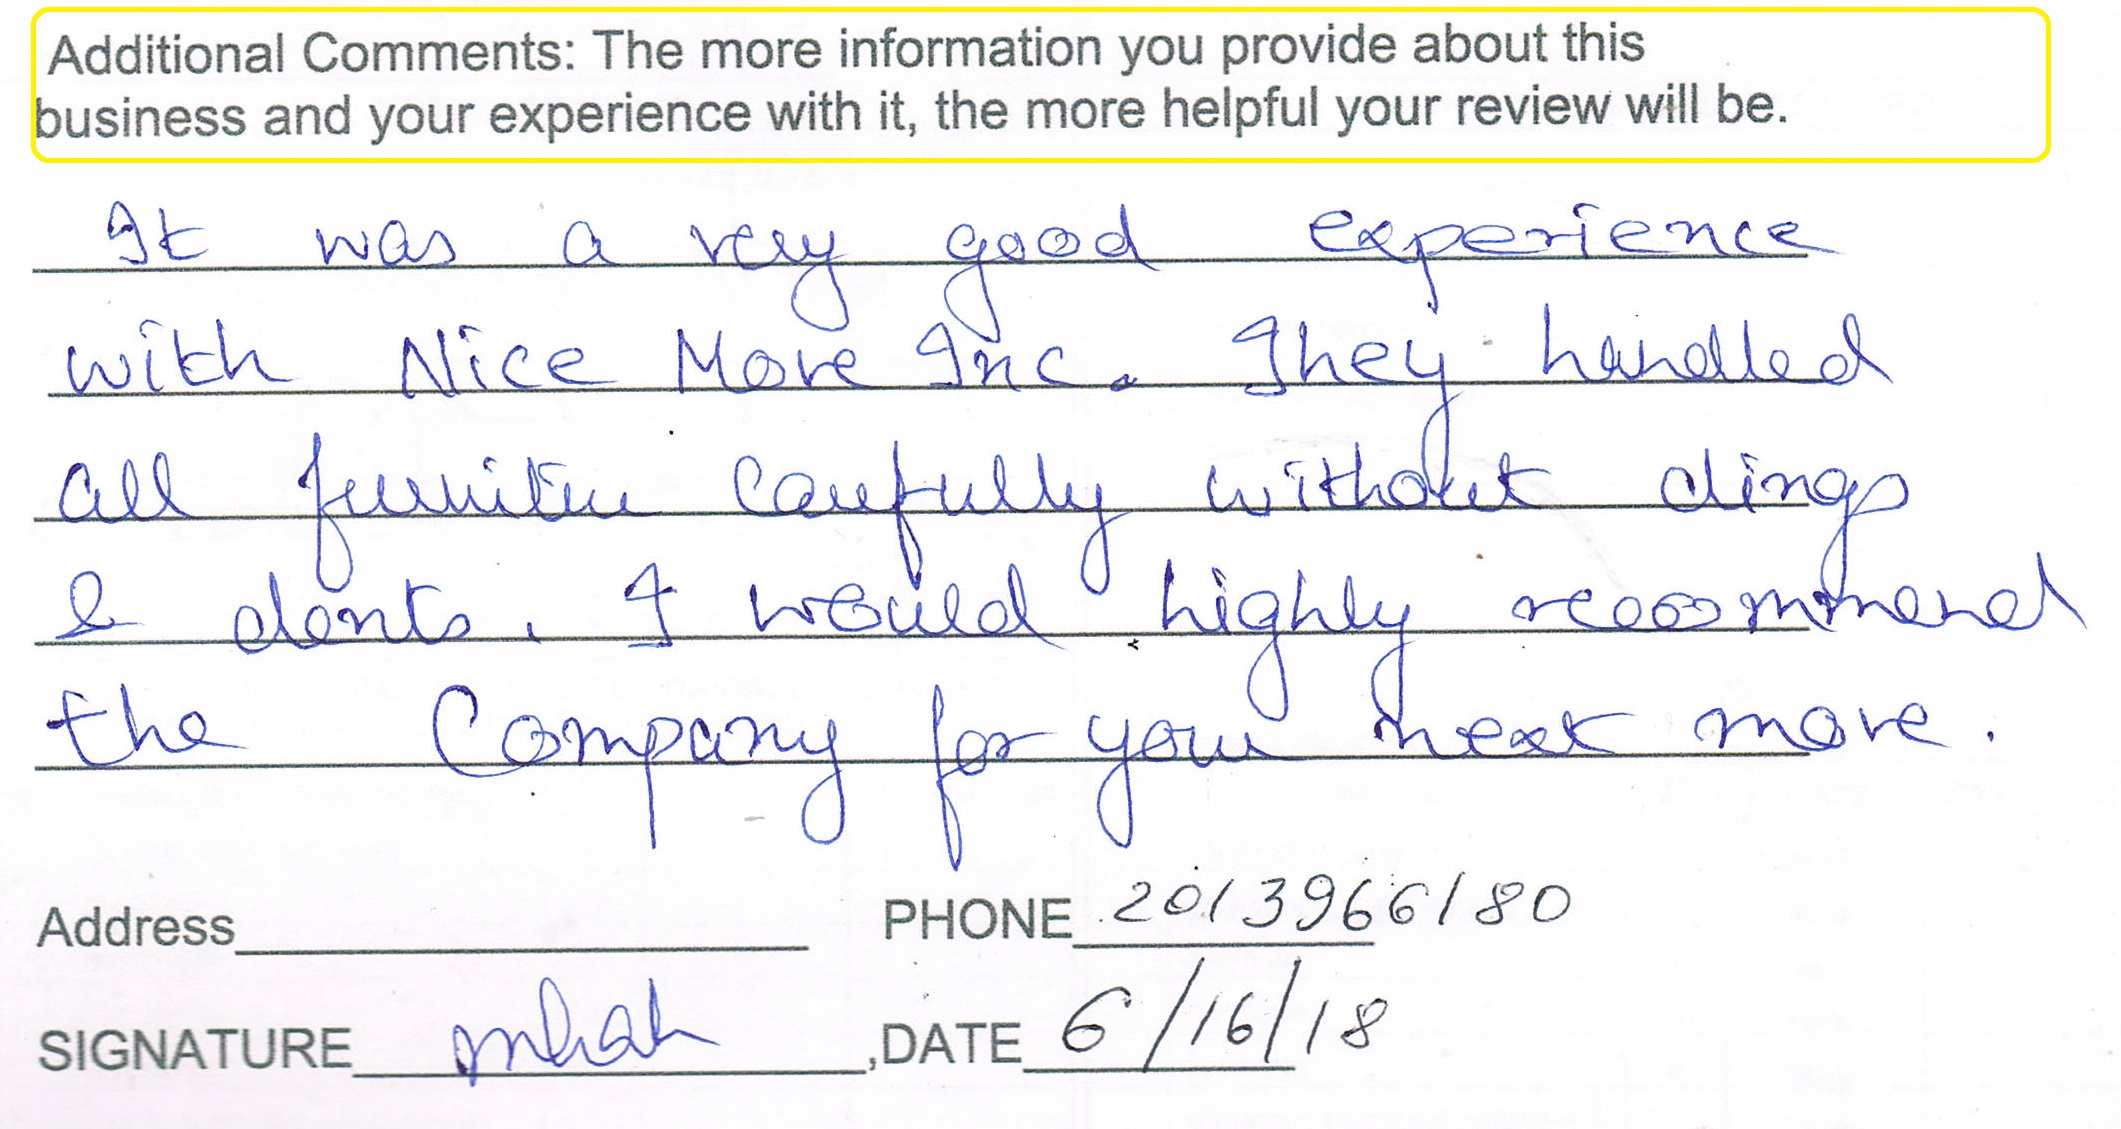 Additional Comments: The more information you provide about this
business and your experience with it, the more helpful your review will be.
It was a very good experience
with Nice Move Inc. They handled
all furniture carefully without dings
& dents. I would highly recommend
the Company for your next move.
Address PHONE 2013966180
SIGNATURE ,DATE 6/16/18